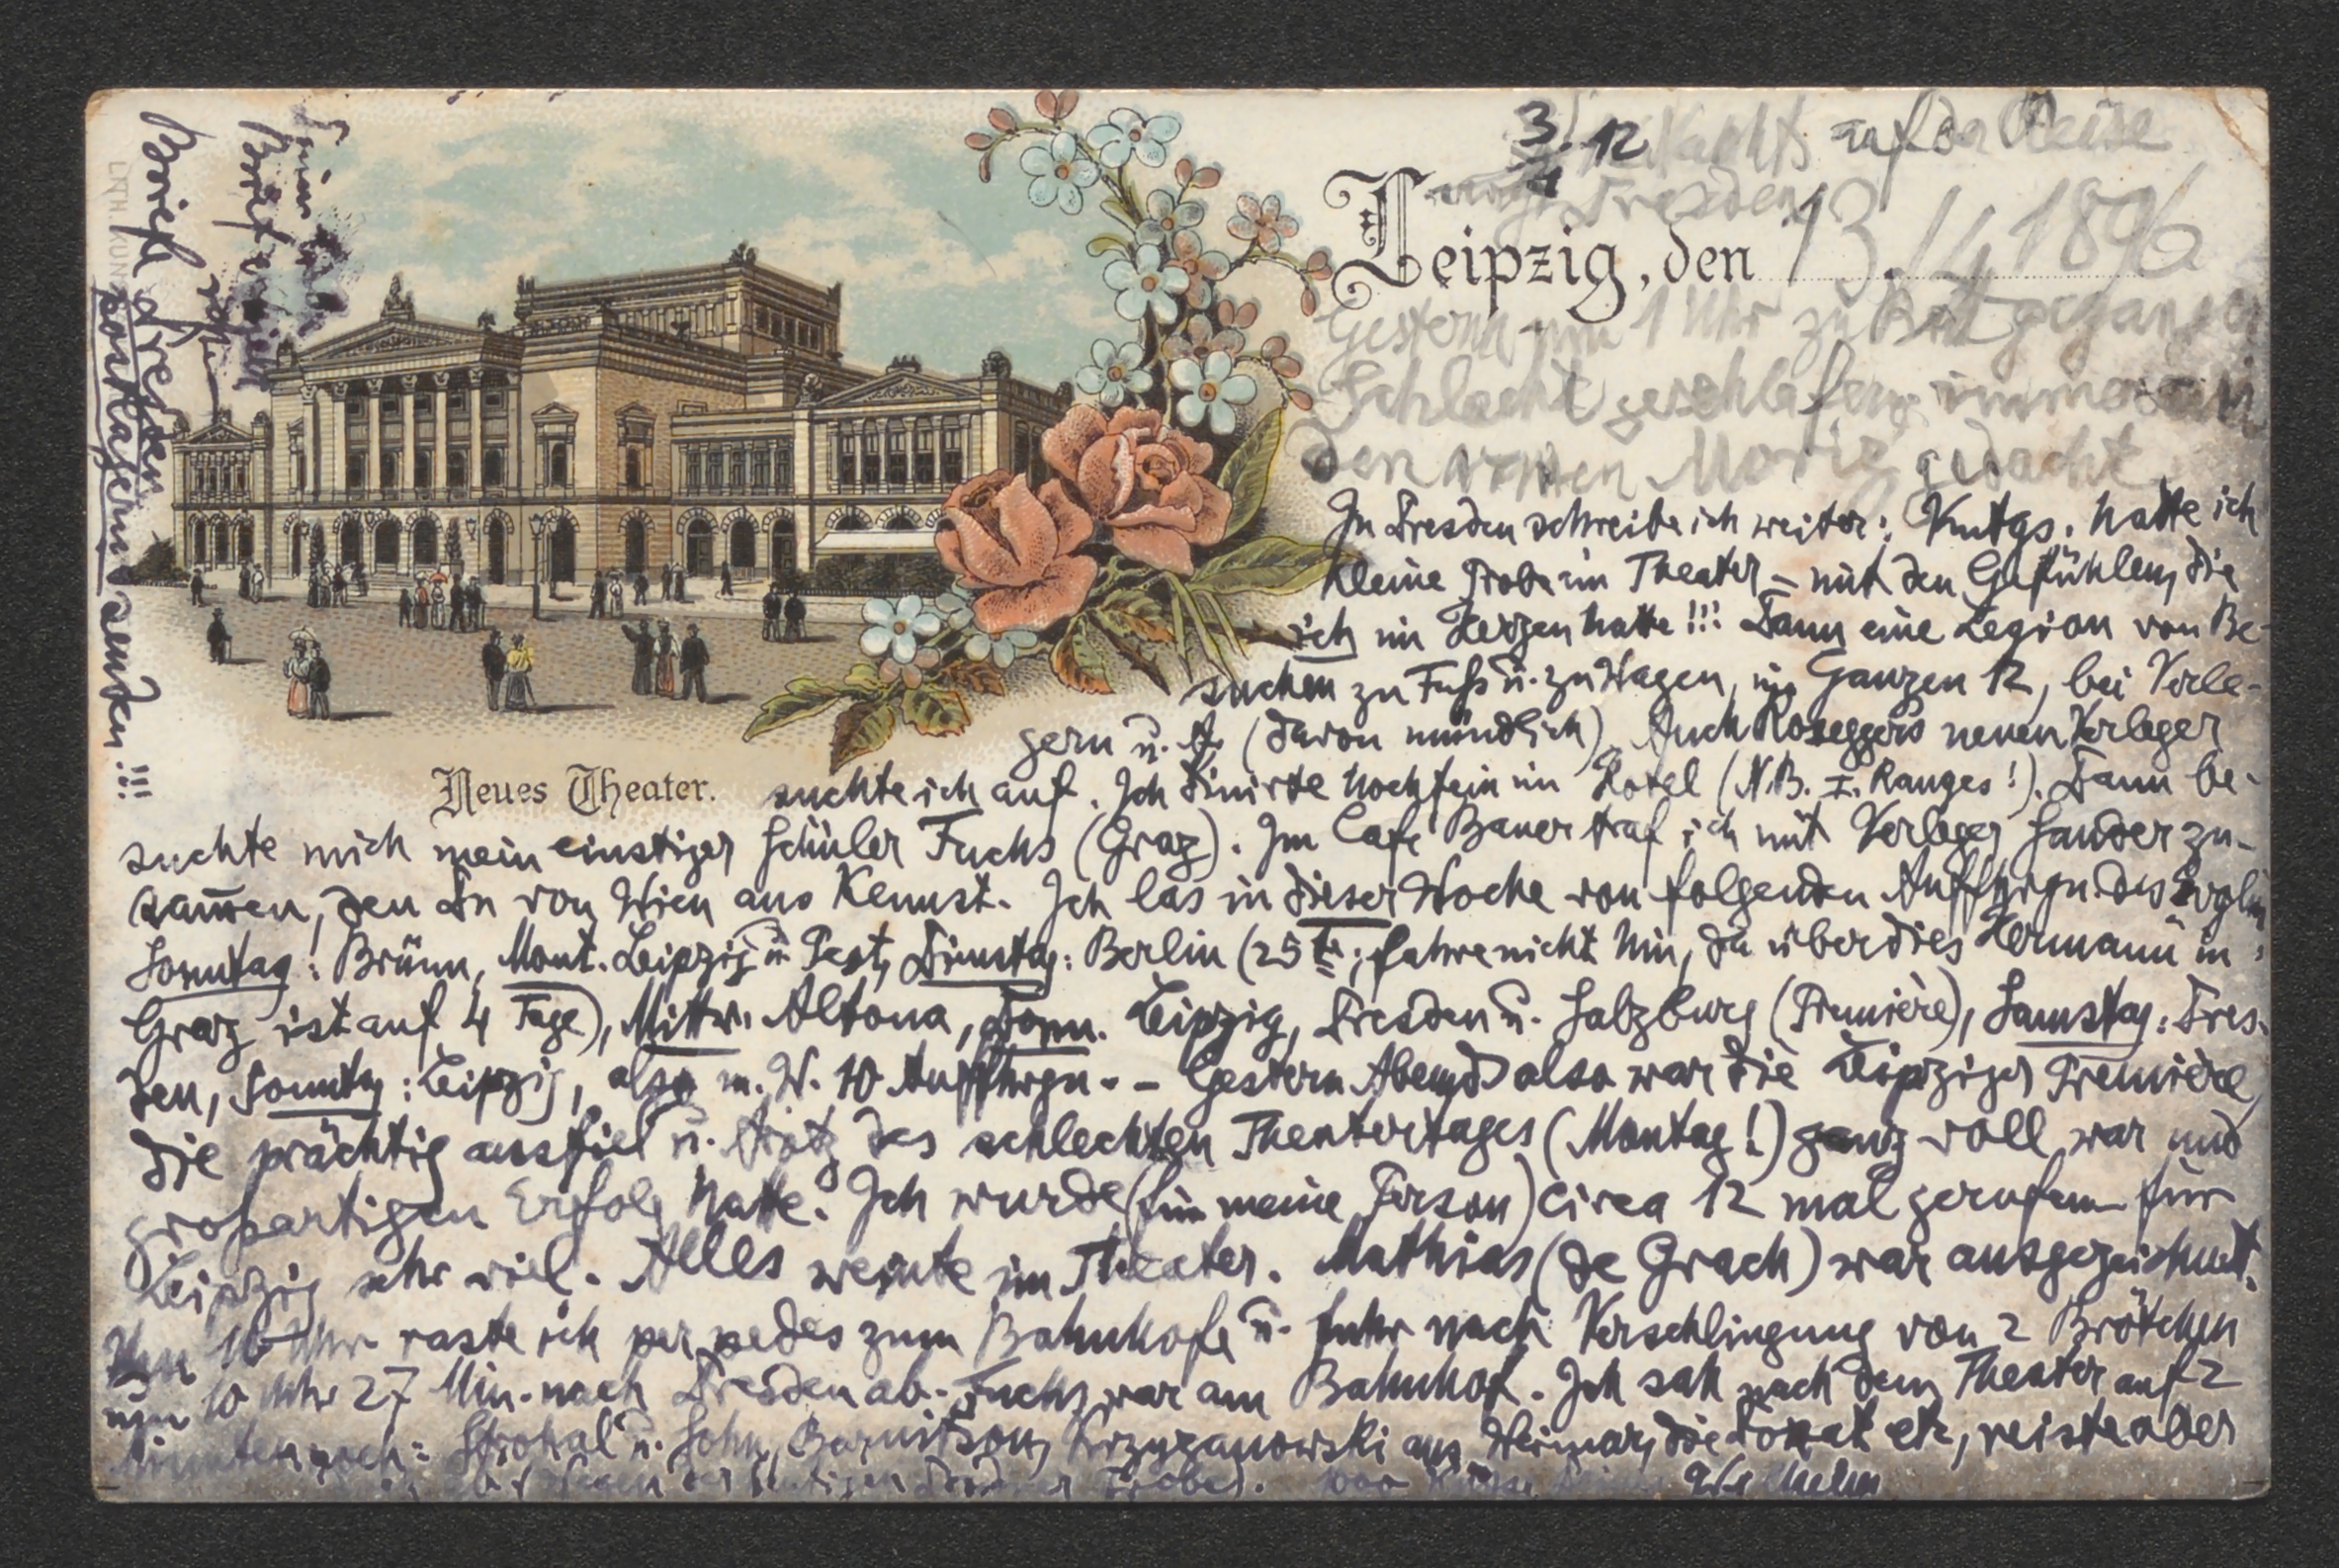 3. 12 Nachts auf der Reise
nach Dresden
Leipzig, den 13./4 1896
Gestern um 1 Uhr zu Bett gegangen
Schlecht geschlafen, immer an
den armen Moriz gedacht.
In Dresden schreibe ich weiter: Vmtgs. hatte ich
kleine Probe im Theater – mit den Gefühlen, die
ich im Herzen hatte!!! Dann eine Legion von Be-
suchen zu Fuß u. zu Wagen, im Ganzen 12, bei Verle-
gern u. A. (davon mündlich). Auch Roseggers neuen Verleger
suchte ich auf. Ich dinirte hochfein im Hotel (N.B. I. Ranges!). Dann be-
suchte mich mein einstiger Schüler Fuchs (Graz). Im Cafe Bauer traf ich mit Verleger Sander zu-
sam̄en, den Du von Wien aus kennst. Ich las in dieser Woche von folgenden Aufführgn. des Evglm
Sonntag: Brünn, Mont. Leipzig u. Pest, Dienstag: Berlin (25te; fahre nicht hin, da überdies Hermann in
Graz ist auf 4 Tage), Mittw. Altona, Donn. Leipzig, Dresden u. Salzburg (Première), Samstag: Dres-
den, Sonntag: Leipzig, also m. W. 10 Aufführgn. – Gestern Abend also war die Leipziger Première,
die prächtig ausfiel u. trotz des schlechten Theatertages (Montag!) ganz voll war und
großartigen Erfolg hatte. Ich wurde (für meine Person) circa 12 mal gerufen für
Leipzig sehr viel. Alles weinte im Theater. Mathias (de Grach) war ausgezeichnet.
Um 10 Uhr raste ich per pedes zum Bahnhofe u. fuhr nach Verschlingung von 2 Brötchen
um 10 Uhr 27 Min. nach Dresden ab. Fuchs war am Bahnhof. Ich sah nach dem Theater auf 2
Minuten noch: Strohal u. Sohn, Krzyzanowski aus Weimar, die Donat etc, reiste aber
ab wegen der heutigen Dresdner Proben. 1000 Küsse Dein Wilhelm
Briefe Dresden
postlagernd senden!!!
Brief
Neues Theater.